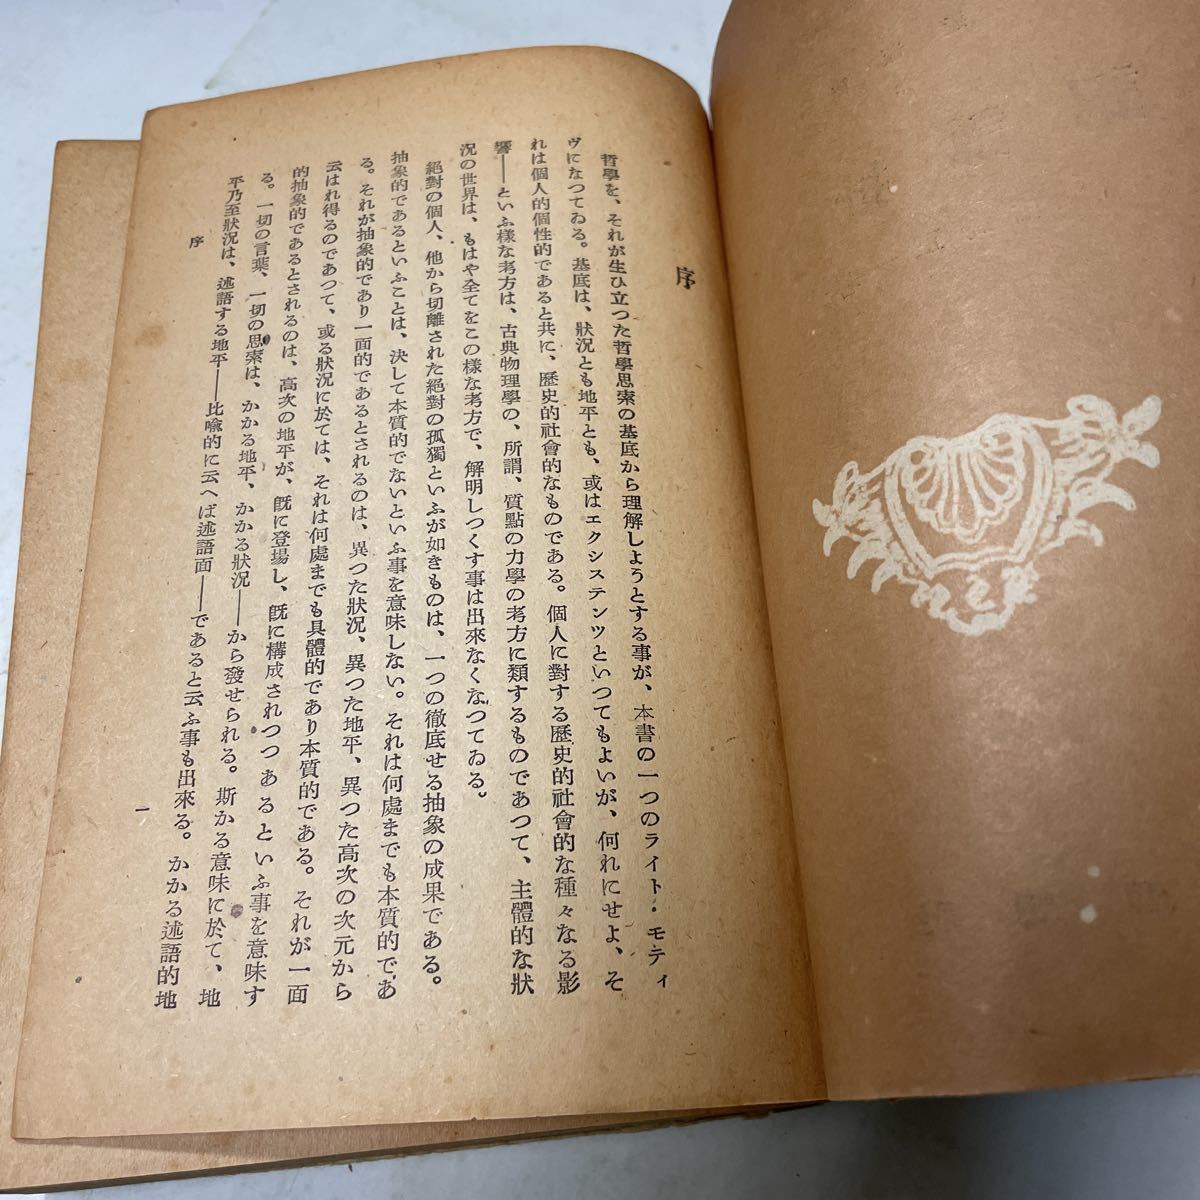 序
哲學を、それが生ひ立つた哲學思索の基底から理解しようとする事が、本書の一つのライト・モティ
ヴになつてゐる。基底は、狀況とも地平とも、或はエクシステンツといつてもよいが、何れにせよ、そ
れは個人的個性的であると共に、歷史的社會的なものである。個人に對する歷史的社會的な種々なる影
響——といふ樣な考方は、古典物理學の、所謂、質點の力學の考方に類するものであつて、主體的な狀
況の世界は、もはや全てをこの樣な考方で、解明しつくす事は出來なくなつてゐる。
絕對の個人、他から切離された絕對の孤獨といふが如きものは、一つの徹底せる抽象の成果である。
抽象的であるといふことは、決して本質的でないといふ事を意味しない。それは何處までも本質的であ
る。それが抽象的であり一面的であるとされるのは、異つた狀況、異つた地平、異つた高次の次元から
云はれ得るのであつて、或る狀況に於ては、それは何處までも具體的であり本質的である。それが一面
的抽象的であるとされるのは、高次の地平が、旣に登場し、旣に構成されつつあるといふ事を意味す
る。一切の言葉、一切の思索は、かかる地平、かかる狀況——から發せられる。斯かる意味に於て、地
平乃至狀況は、述語する地平——比喩的に云へば述語面——であると云ふ事も出來る。かかる述語的地
序
一